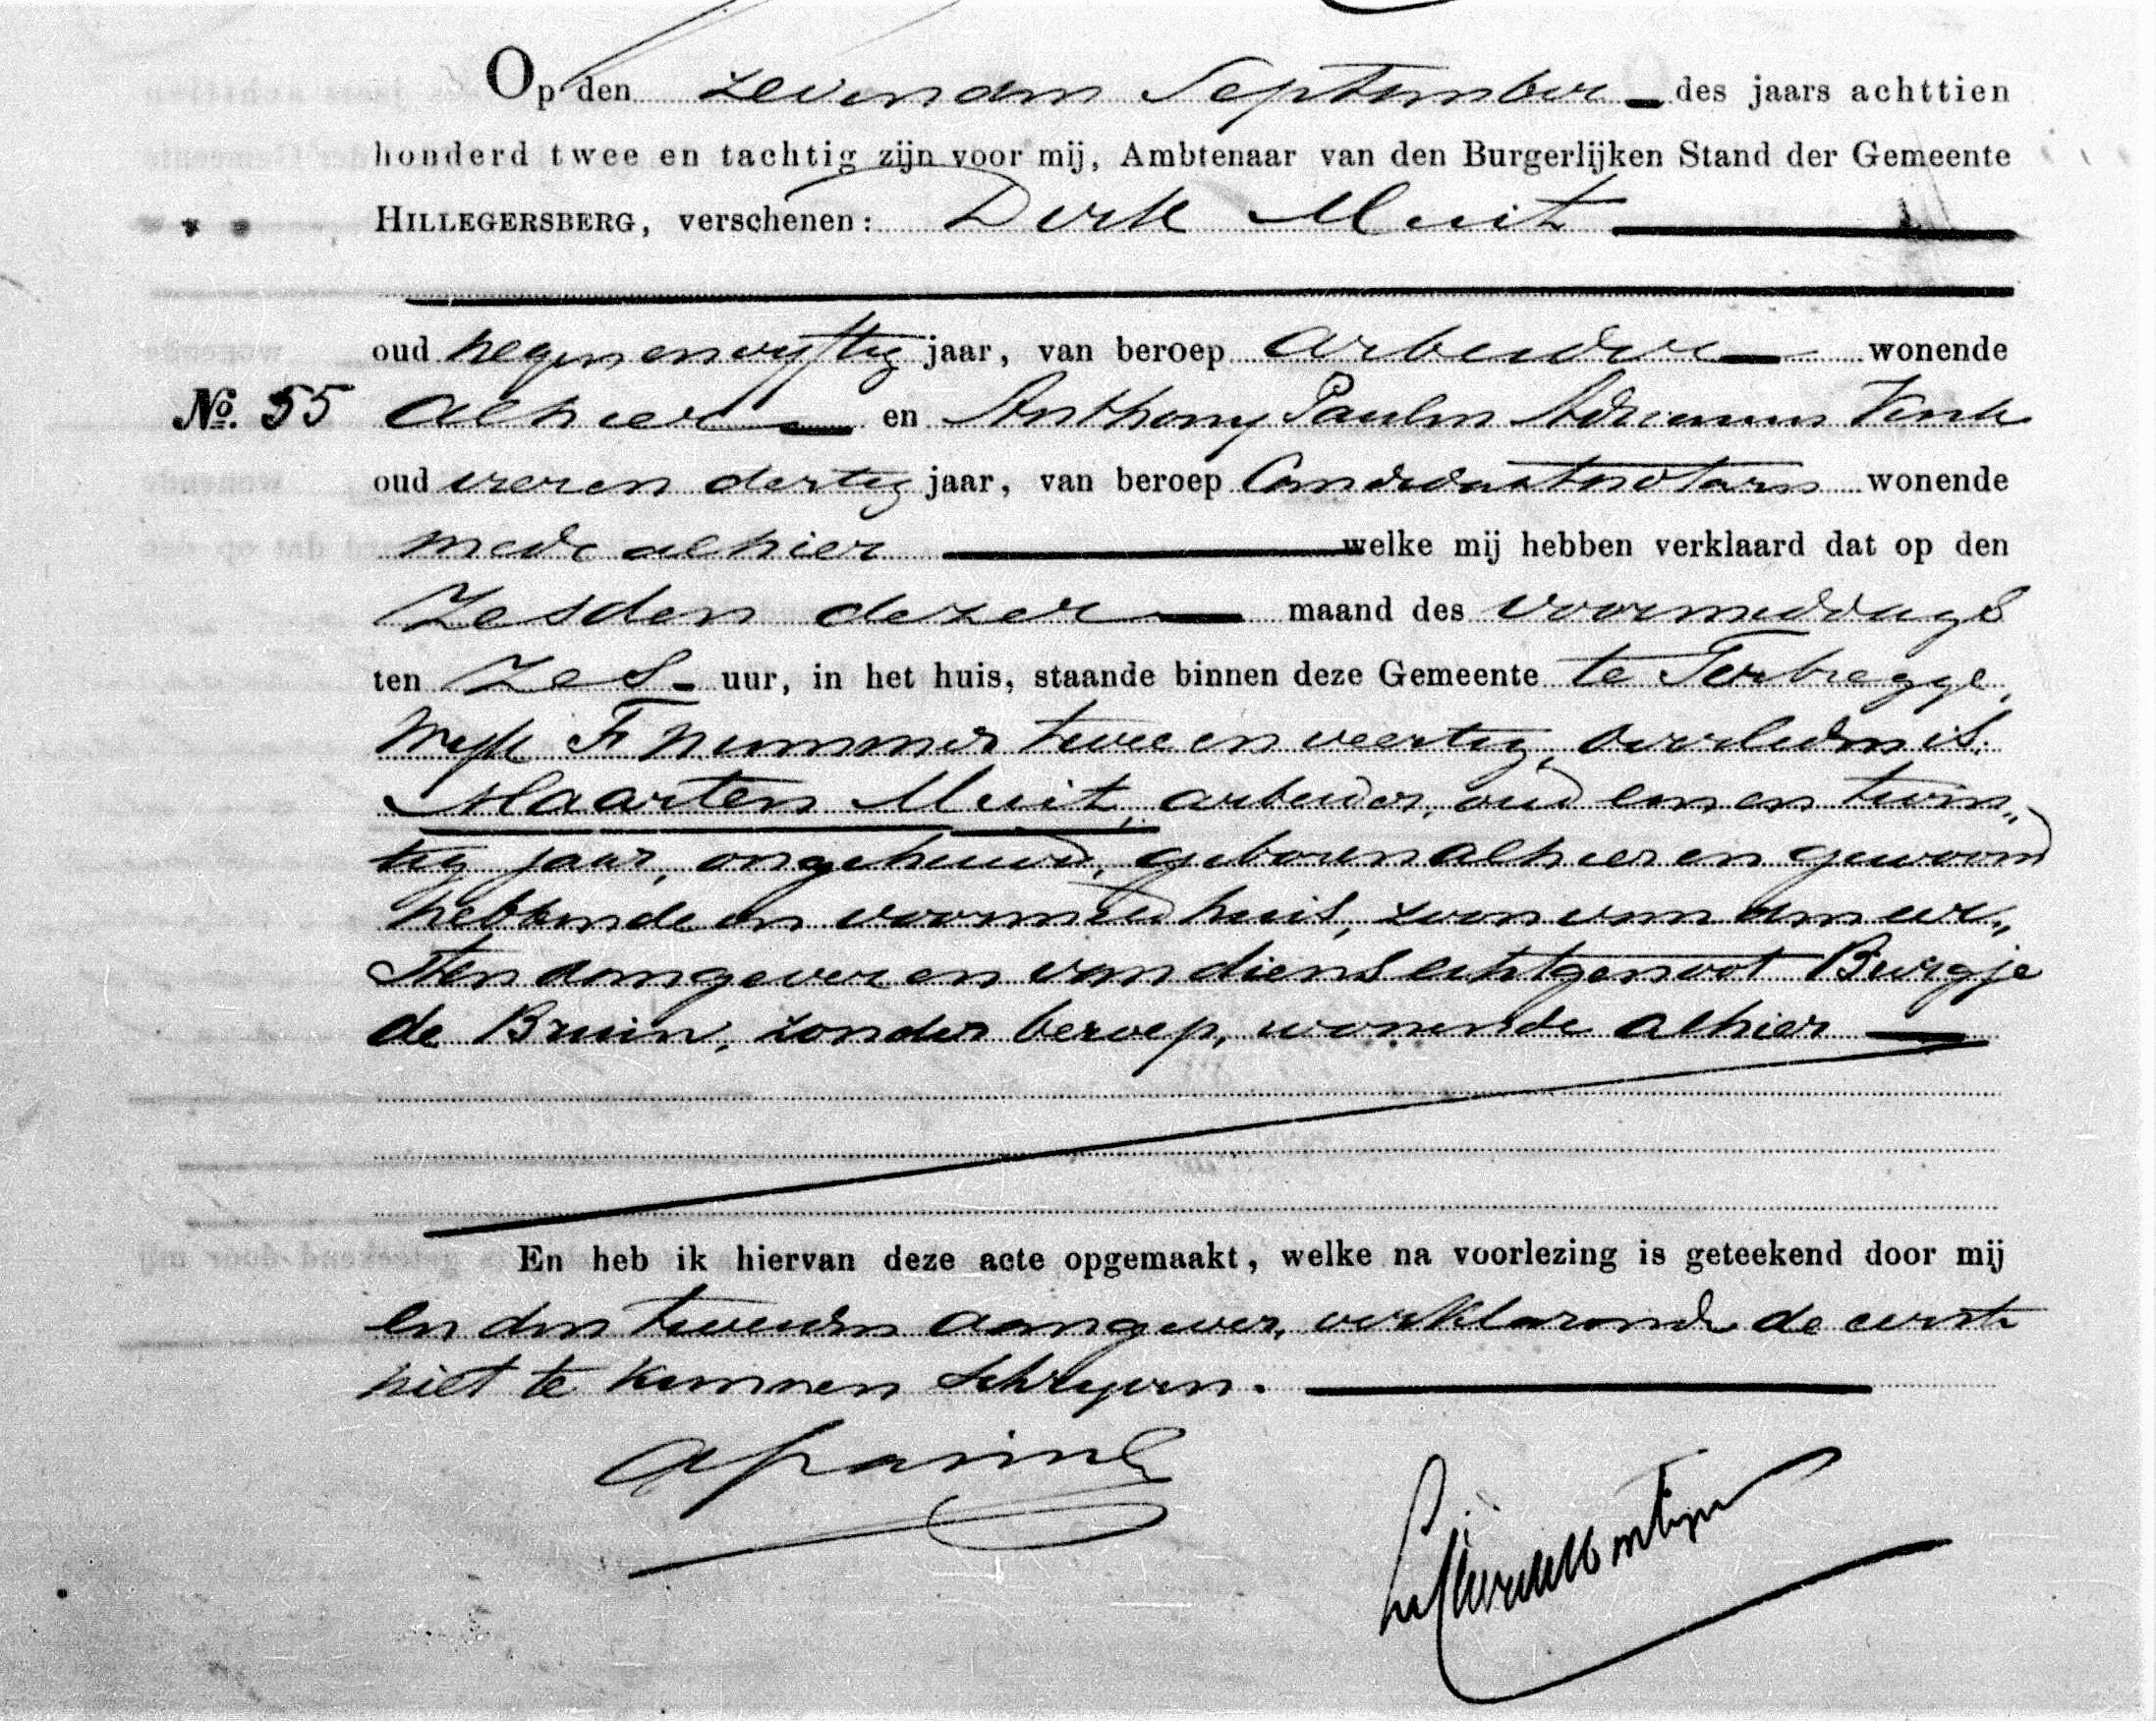 Op den zevenden September des jaars achttien
honderd twee en tachtig zijn voor mij, Ambtenaar van den Burgerlijken Stand der Gemeente
HILLEGERSBERG, verschenen: Dirk Muit
oud negen en vijftig jaar, van beroep arbeider wonende
No. 55 alhier en Anthony Paulus Adrianus Vink
oud vier en dertig jaar, van beroep Candidaatnotaris wonende
mede alhier welke mij hebben verklaard dat op den
zesden dezer maand des voormiddags
ten zes uur, in het huis, staande binnen deze Gemeente te Terbregge,
wijk F nummer twee en veertig, overleden is
Maarten Muit, arbeider, oud een en twin„
tig jaar, ongehuwd, geboren alhier en gewoond
hebbende in voormeld huis, zoon van den eer„
sten aangever en van diens echtgenoot Burgje
de Bruin, zonder beroep, wonende alhier
En heb ik hiervan deze acte opgemaakt, welke na voorlezing is geteekend door mij
en den tweeden aangever, verklarende de eerste
niet te kunnen schrijven.